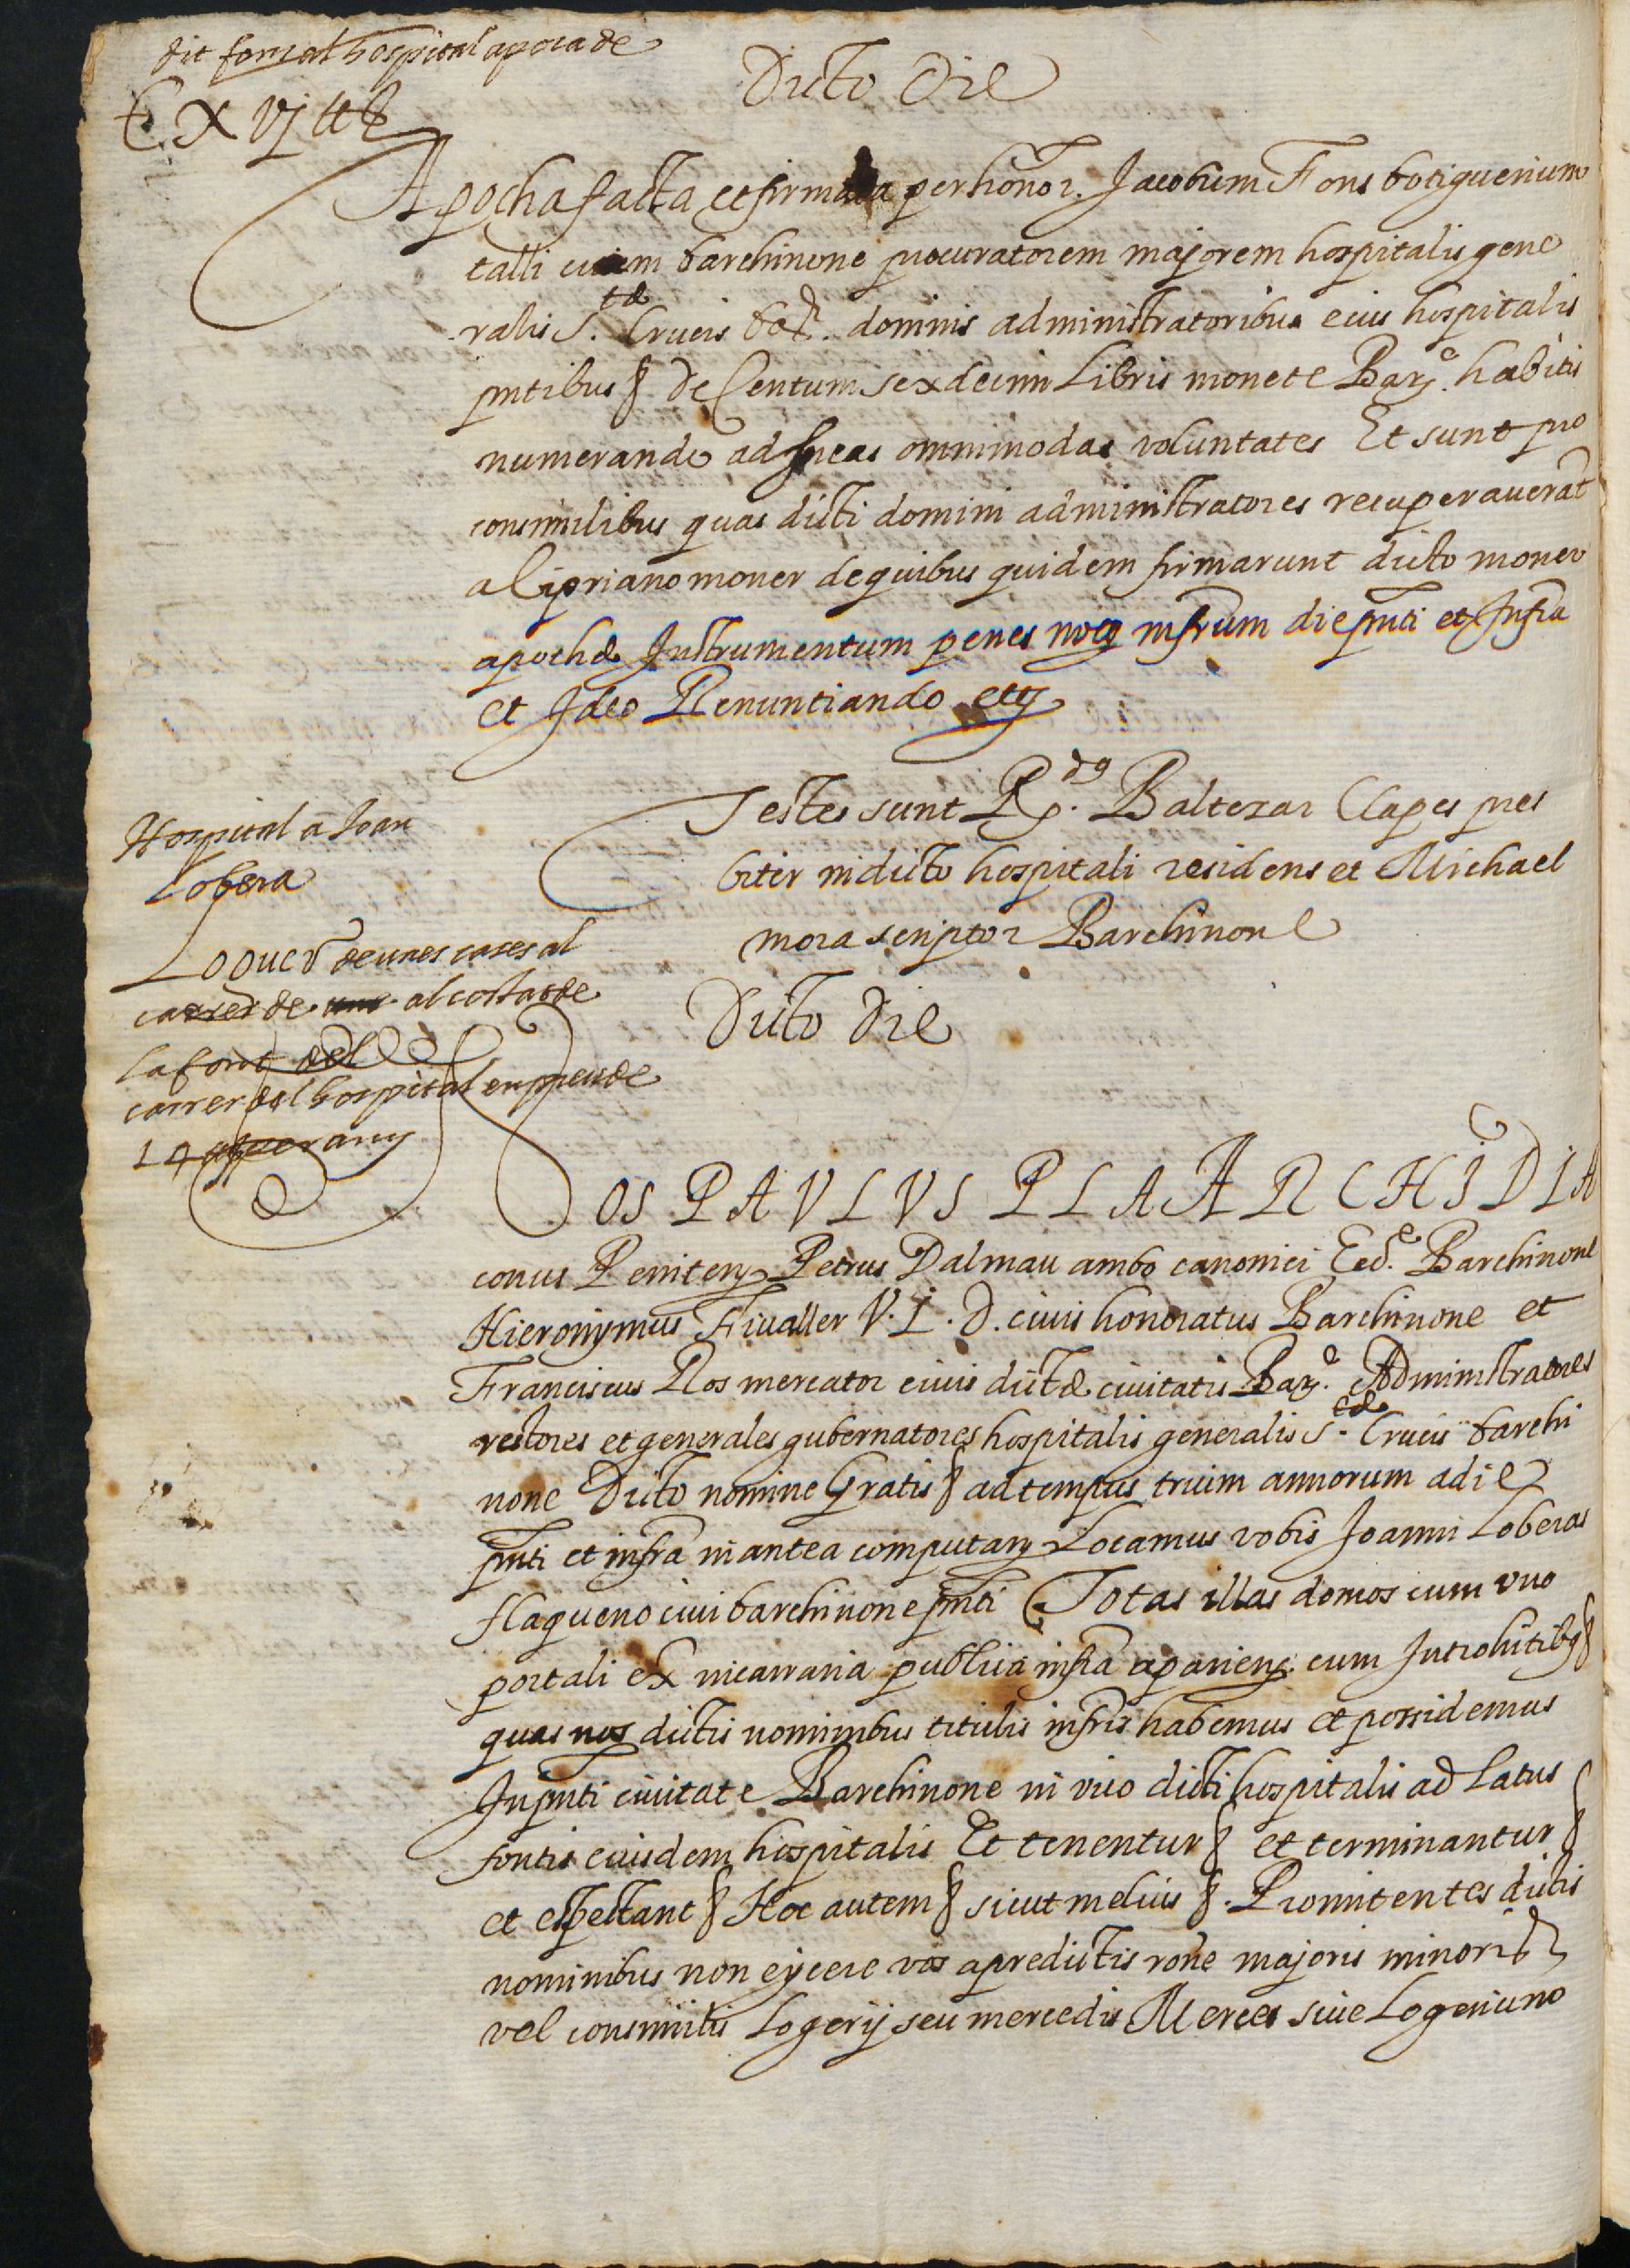 dit fons al hospital apoca de
C x vj ll ß
Dicto die
Apocha facta et firmata per honor. Jacobum Fons botiguerium
talli civem barchinone procuratorem majorem hospitalis gene
ralis S.tæ Crucis bar. dominis administratoribus eius hospitalis
pntibus § de Centum sexdecim Libris monete Barȝ.e habitis
numerando ad meas omnimodas voluntates Et sunt pro
consimilibus quas dicti domini administratores recuperauerāt
a Cipriano moner de quibus quidem firmarunt dicto moner
apochæ Instrumentum penes not infrum die pnti et Infra
et Ideo Renuntiando etȝ
Testes sunt Rdus. Baltezar Clapes pres
biter in dicto hospitali residens et Michael
mora scriptor Barchinone
Hospital a Joan
Lobera
Loguer de unes cases al
carrer de al costat de
la font del
carrer del hospital en preu de
per any
Dicto die
NOS PAVLVS PLA ARCHIDIA
conus Penitenȝ Petrus Dalmau ambo canonici Ecd.e Barchinone
Hieronymus Fiualler V. I. D. ciuis honoratus Barchinone et
Franciscus Ros mercator ciuis dictæ ciuitatis Barȝ.e Administratores
rectores et generales gubernatores hospitalis generalis S.tæ Crucis barchi
none Dicto nomine Gratis § ad tempus trium annorum a die
pnti et infra in antea computanȝ Locamus vobis Joanni Loberas
flaquerio ciui barchinone pnti Totas illas domos cum vno
portali ex in carraria publica infra aparienȝ cum Introhitibȝ §
quas nos dictis nominibus titulis infris habemus et possidemus
In pnti ciuitate Barchinone in vico dicti hospitalis ad latus
fontis eiusdem hospitalis Et tenentur § et terminantur §
et espectant § Hoc autem § sicut melius §. Promitentes dictis
nominibus non eycere vos a predictis rone majoris minoris
vel consimilis Logerij seu mercedis Merces siue Logerium